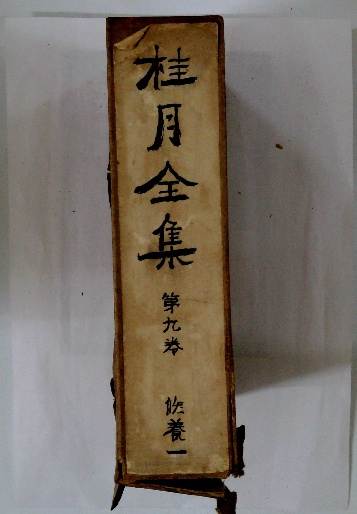 桂月全集
第九卷
修養一